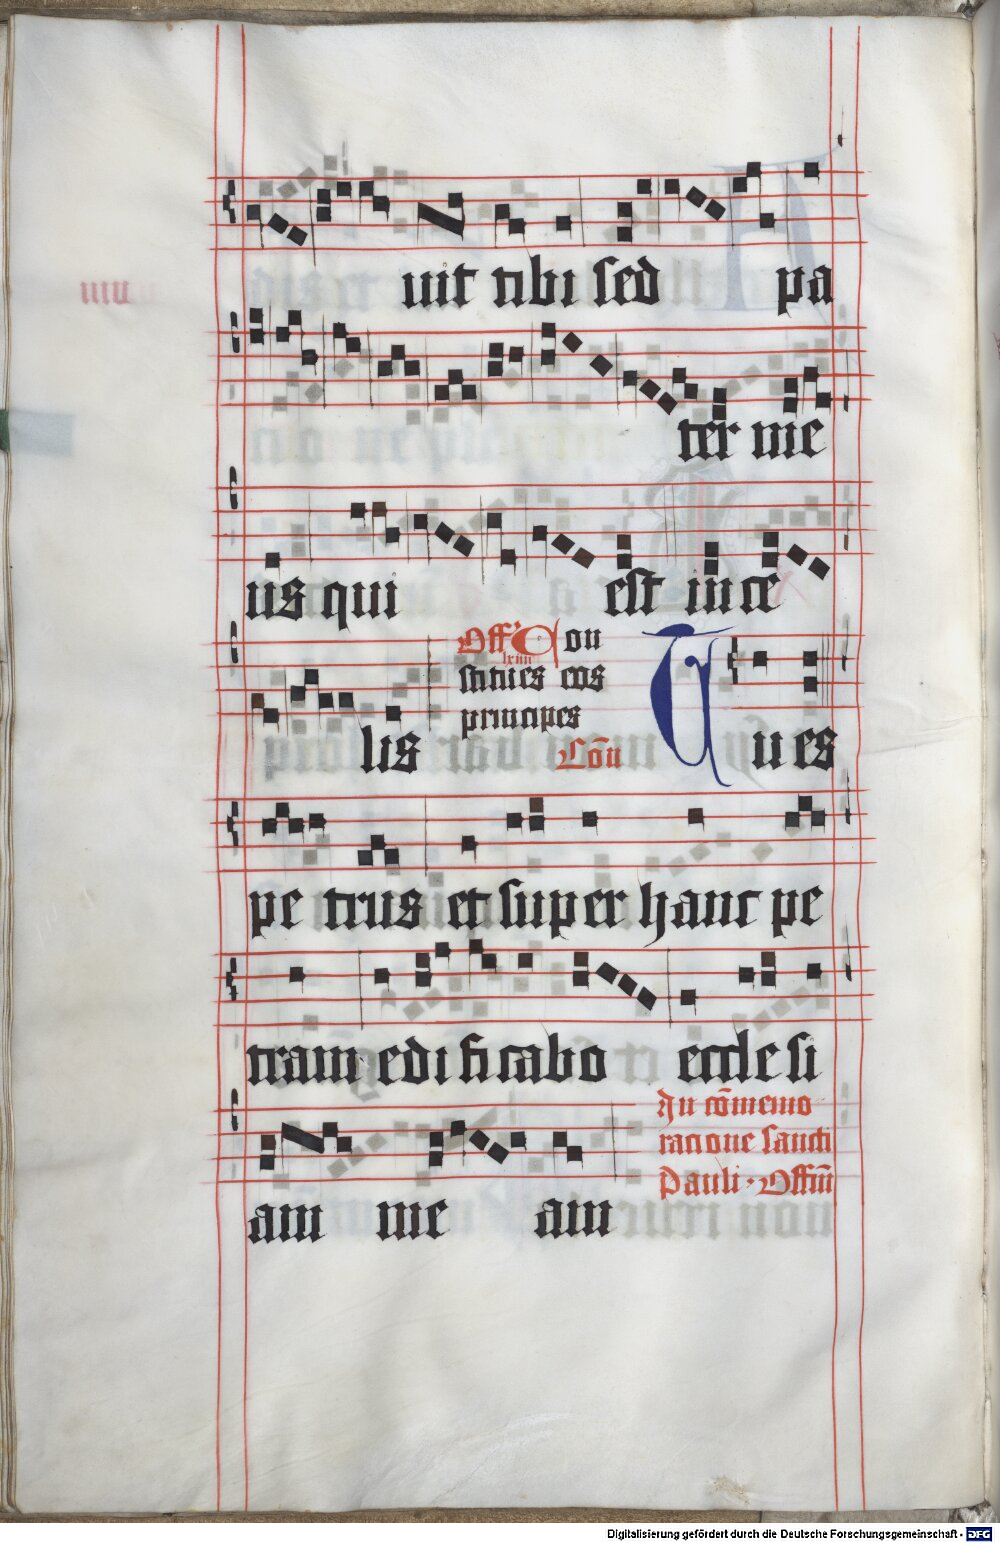 uit tibi sed pa
ter me
us qui est in ce
Off' Con
lxiiii
stitues eos
principes
lis Cōn Tu es
pe trus et super hanc pe
tram edi fi cabo eccle si
In cōmemo
racione sancti
Pauli · Offm̄
am me am
Digitalisierung gefördert durch die Deutsche Forschungsgemeinschaft - DFG